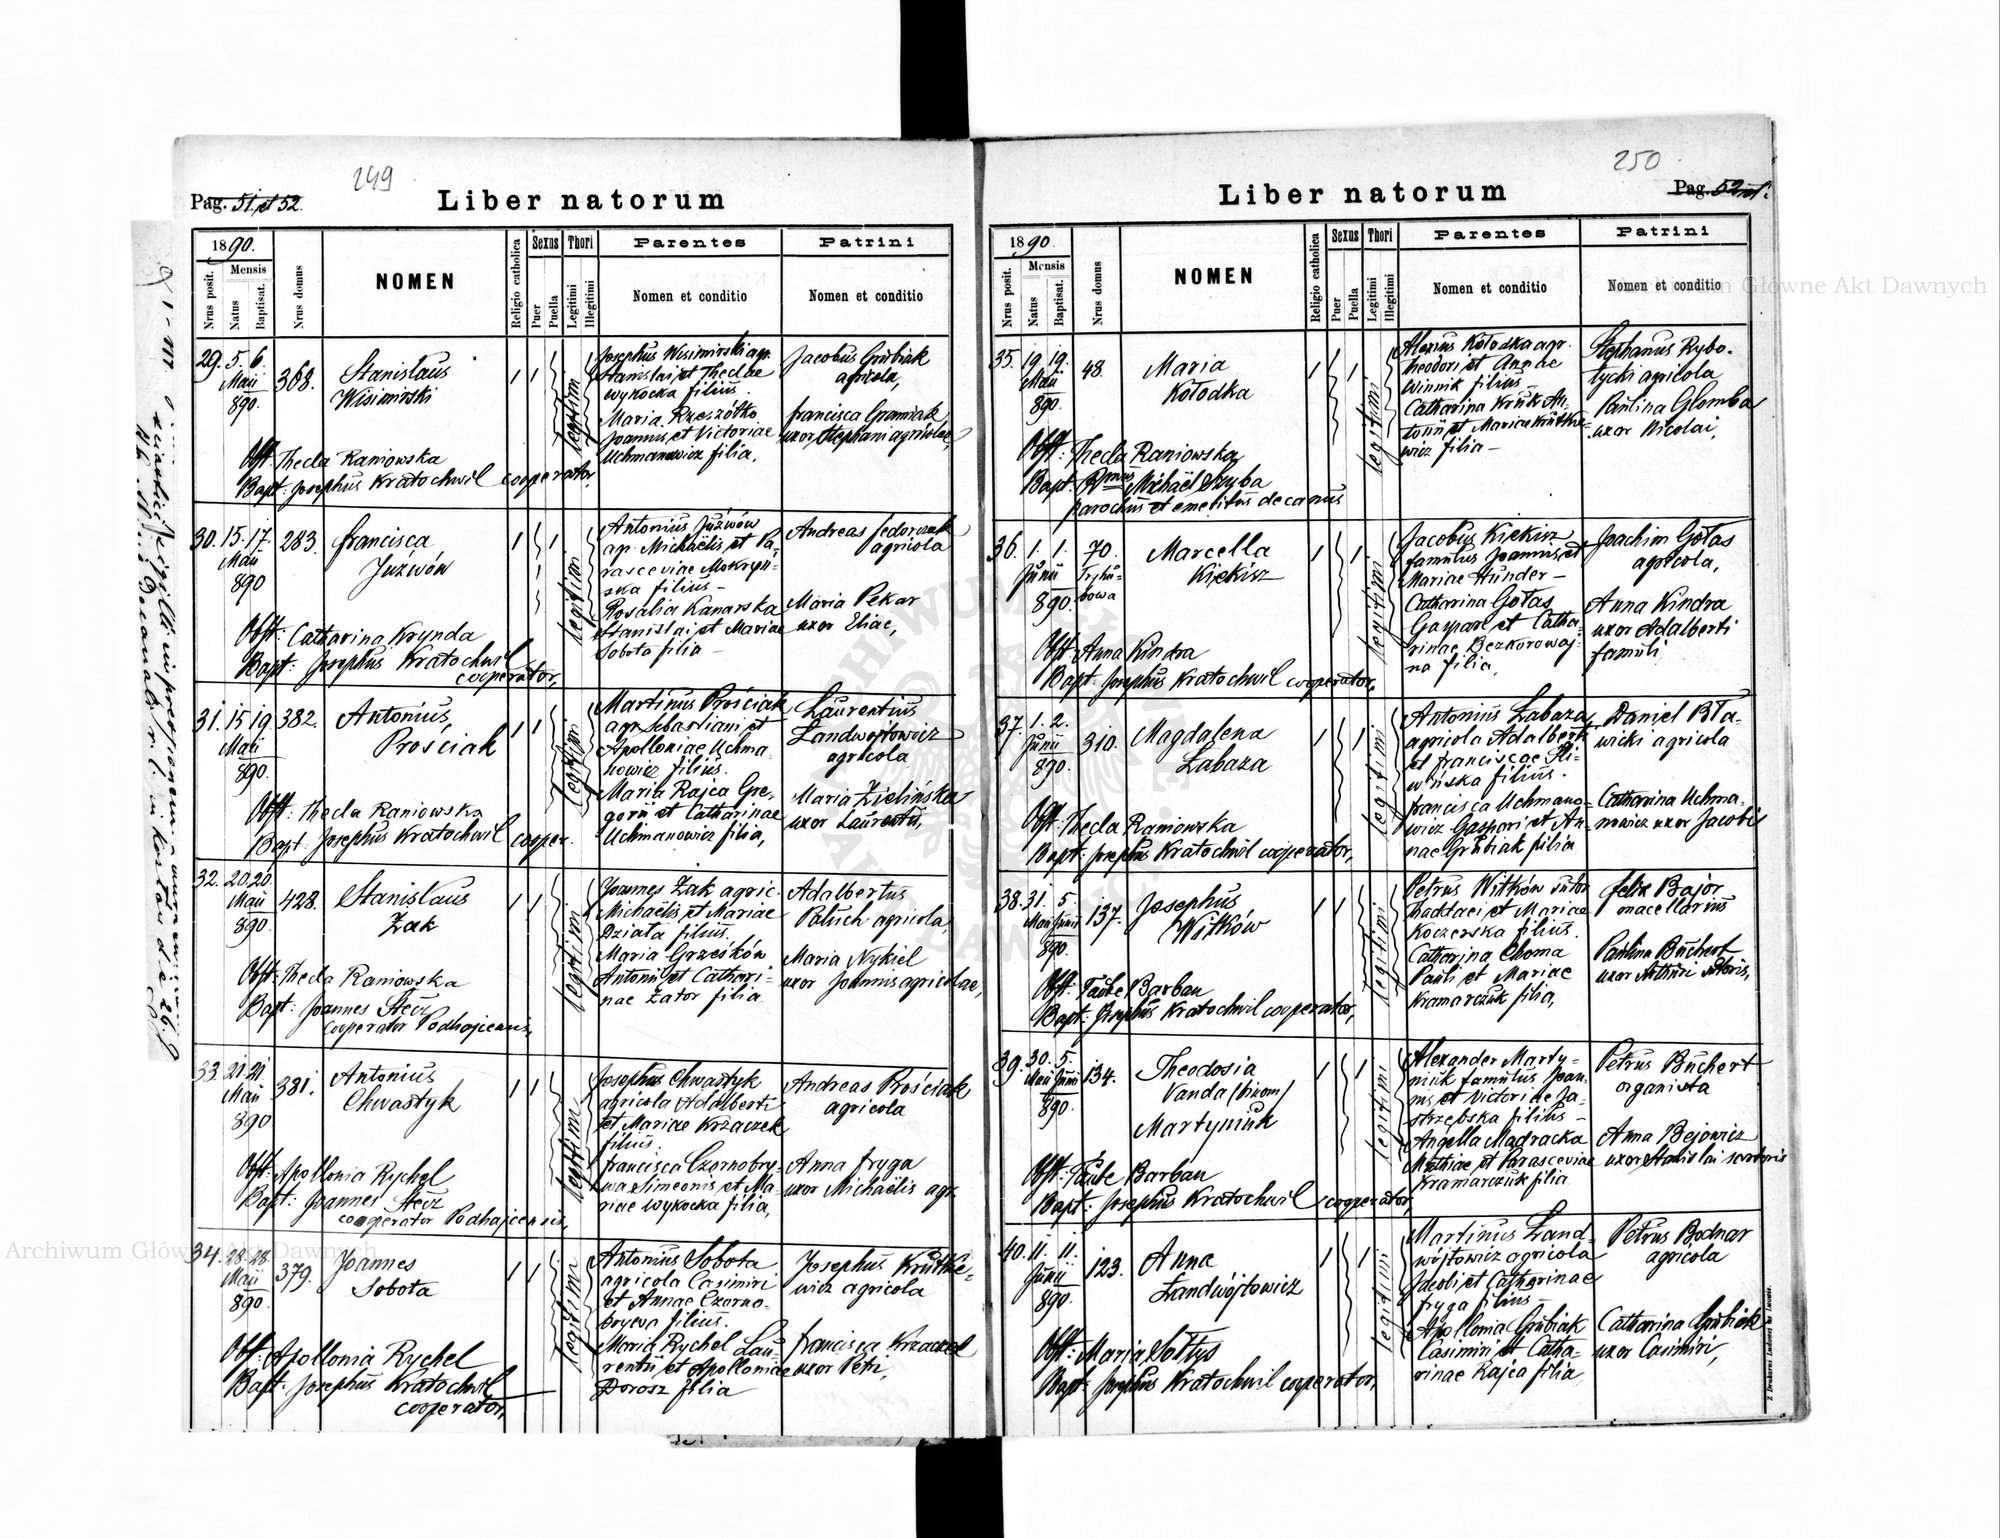 249
Pag. 51 et 52.
Liber natorum
1890.
Nrus posit.
Mensis
Natus
Baptisat.
Nrus domus
NOMEN
Religio catholica
Sexus
Puer
Puella
Thori
Legitimi
Illegitimi
Parentes
Nomen et conditio
Patrini
Nomen et conditio
29. 5. 6. Maii 890. 368.
Stanislaus
Wisimirski
1 1
legitimi
Josephus Wisimirski agr.
Stanislai et Theclae
Wykocka filius.
Maria Rzeszótko
Joannis et Victoriae
Uchmanowicz filia.
Jacobus Grubiak
agricola,
Francisca Gramiak
uxor Stephani agricolae,
Obst: Thecla Raniowska
Bapt: Josephus Kratochwil cooperator.
30. 15. 17. Maii 890 283.
Francisca
Juźwów
1 1
legitimi
Antonius Juźwów
agr. Michaëlis et Pa-
rasceviae Mokryn-
ska filius –
Rosalia Kanarska
Stanislai et Mariae
Sobota filia –
Andreas Fedorwak
agricola
Maria Pekar
uxor Eliae,
Obst: Catharina Krynda
Bapt: Josephus Kratochwil
cooperator,
31. 15 19. Maii 890. 382.
Antonius,
Prościak
1 1
legitimi
Martinus Prościak
agr. Sebastiani et
Apolloniae Uchma
nowicz filius.
Maria Rajca Gre-
gorii et Catharinae
Uchmanowicz filia,
Laurentius
Landwójtowicz
agricola
Maria Zielińska
uxor Laurentii,
Obst: Thecla Raniowska
Bapt: Josephus Kratochwil cooper.
32. 20. 20. Maii 890. 428.
Stanislaus
Żak
1 1
legitimi
Joannes Żak agric.
Michaëlis et Mariae
Działa filius.
Maria Grześków
Antonii et Cathari-
nae Zator filia
Adalbertus
Paluch agricola,
Maria Nykiel
uxor Joannis agricolae,
Obst: Thecla Raniowska
Bapt: Joannes Stecz
cooperator Podhajcensis,
33. 21. 21. Maii 890 381.
Antonius
Chwastyk
1 1
legitimi
Josephus Chwastyk
agricola Adalberti
et Mariae Krzaczek
filius.
Francisca Czornobry-
wa Simeonis et Ma-
riae Wykocka filia,
Andreas Prościak
agricola
Anna Fryga
uxor Michaëlis agr.
Obst: Apollonia Rychel
Bapt: Joannes Stecz
cooperator Podhajcensis,
34. 28. 28. Maii 890. 379.
Joannes
Sobota
1 1
legitimi
Antonius Sobota
agricola Casimiri
et Annae Czorno-
brywa filius.
Maria Rychel Lau-
rentii et Apolloniae
Dorosz filia
Josephus Krutkie-
wicz agricola
Francisca Krzaczek
uxor Petri,
Obst: Apollonia Rychel
Bapt: Josephus Kratochwil
cooperator,
250
Liber natorum
Pag. 52
1890.
Nrus posit.
Mensis
Natus
Baptisat.
Nrus domus
NOMEN
Religio catholica
Sexus
Puer
Puella
Thori
Legitimi
Illegitimi
Parentes
Nomen et conditio
Patrini
Nomen et conditio
35. 19. 19. Maii 890. 48.
Maria
Kołodka
1 1
legitimi
Alexius Kołodka agr.
Theodori et Annae
Winnik filius –
Catharina Kruk An-
tonii et Mariae Krutkie-
wicz filia –
Stephanus Rybo-
tycki agricola
Paulina Glomba
uxor Nicolai,
Obst: Thecla Raniowska
Bapt: Rmus Michaël Szyba
parochus et emeritus decanus
36. 1. 1. Junii 890. 70. Tryhu-
bowa
Marcella
Kiękisz
1 1
legitimi
Jacobus Kiękisz
famulus Joannis et
Mariae Hunder –
Catharina Gołas
Gaspari et Catha-
rinae Bezkorowaj-
na filia,
Joachim Gołas
agricola,
Anna Kindra
uxor Adalberti
famuli
Obst: Anna Kindra
Bapt: Josephus Kratochwil cooperator,
37. 1. 2. Junii 890. 310.
Magdalena
Łabaza
1 1
legitimi
Antonius Łabaza,
agricola Adalberti
et Franciscae Śli-
wińska filius.
Francisca Uchmano-
wicz Gaspari et An-
nae Grubiak filia
Daniel Bła-
wicki agricola
Catharina Uchma-
nowicz uxor Jacobi
Obst: Thecla Raniowska
Bapt: Josephus Kratochwil cooperator,
38. 31. 5. Maii Junii 890. 137.
Josephus,
Witków
1 1
legitimi
Petrus Witków sutor
Thaddaei et Mariae
Koczerska filius.
Catharina Choma
Pauli et Mariae
Kramarczuk filia,
Felix Bajor
macellarius
Paulina Buchert
uxor Arthuri sutoris,
Obst: Taube Barban
Bapt: Josephus Kratochwil cooperator,
39. 30. 5. Maii Junii 890. 134.
Theodosia
Vanda /binom/
Martyniuk
1 1
legitimi
Alexander Marty-
niuk famulus Joan-
nis et Victoriae Ja-
strzębska filius –
Angella Mądracka
Mathiae et Parasceviae
Kramarczuk filia
Petrus Buchert
organista
Anna Bejowicz
uxor Stanislai sartoris
Obst: Taube Barban
Bapt: Josephus Kratochwil cooperator,
40. 11. 11. Junii 890. 123.
Anna
Landwójtowicz
1 1
legitimi
Martinus Land-
wójtowicz agricola
Jacobi et Catharinae
Fryga filius –
Apollonia Grubiak
Casimiri et Catha-
rinae Rajca filia
Petrus Bodnar
agricola
Catharina Grubiak
uxor Casimiri,
Obst: Maria Sołtys
Bapt: Josephus Kratochwil cooperator,
Archiwum Główne Akt Dawnych
Archiwum Główne Akt Dawnych